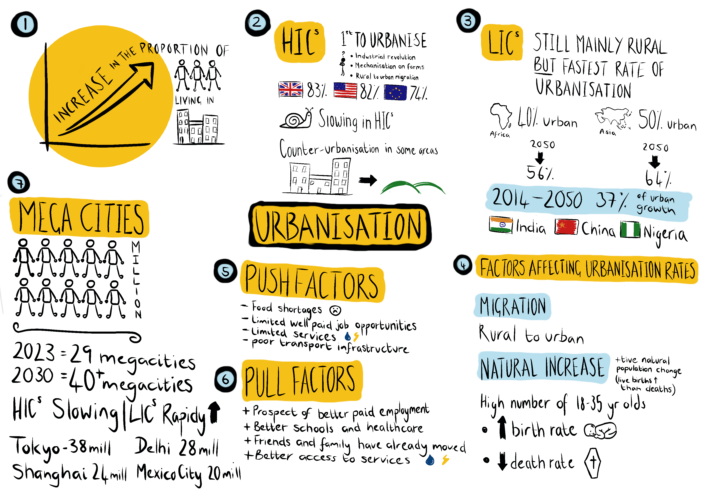 1
INCREASE IN THE PROPORTION OF
LIVING IN
2
HICs
1st TO URBANISE
• Industrial revolution
• Mechanisation on farms
• Rural to urban migration
83% 82% 74%
Slowing in HICs
Counter-urbanisation in some areas
3
LICs
STILL MAINLY RURAL
BUT FASTEST RATE OF
URBANISATION
40% urban
Africa
50% urban
Asia
2050
56%
2050
64%
2014-2050 37% of urban
growth
India China Nigeria
URBANISATION
4
FACTORS AFFECTING URBANISATION RATES
MIGRATION
Rural to urban
NATURAL INCREASE
+tive natural
population change
(live births↑
than deaths)
High number of 18-35 yr olds
• ↑ birth rate
• ↓ death rate
5
PUSH FACTORS
- Food shortages
- Limited well paid job opportunities
- Limited services
- poor transport infrastructure
6
PULL FACTORS
+ Prospect of better paid employment
+ Better schools and healthcare
+ Friends and family have already moved
+ Better access to services
7
MEGA CITIES
MILLION
2023 = 29 megacities
2030 = 40+ megacities
HICs Slowing | LICs Rapidy ↑
Tokyo - 38mill Delhi 28mill
Shanghai 24mill Mexico City 20mill